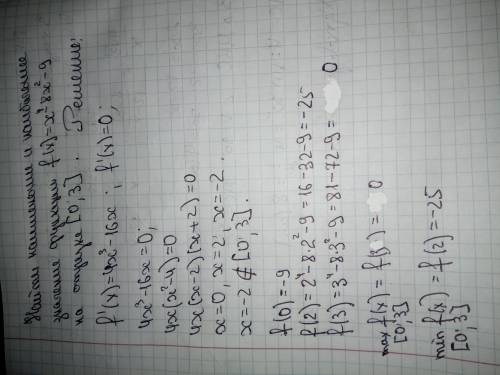 Найти наименьшее и наибольшее
значения функции f(x)=x⁴-8x²-9
на отрезке [0;3]. Решение:
f'(x)=4x³-16x ; f'(x)=0;
4x³-16x=0;
4x(x²-4)=0
4x(x-2)(x+2)=0
x=0, x=2, x=-2.
x=-2 ∉ [0;3].
f(0)=-9
f(2)=2⁴-8·2²-9=16-32-9=-25
f(3)=3⁴-8·3²-9=81-72-9= 0
max f(x) = f(3) = 0
[0;3]
min f(x) = f(2)=-25
[0;3]